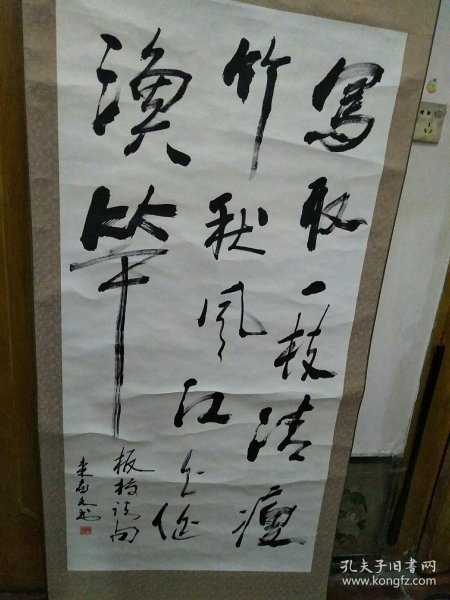 寫取一枝清瘦
竹秋風江上作
漁竿
板橋詩句
孔夫子旧书网
www.kongfz.com